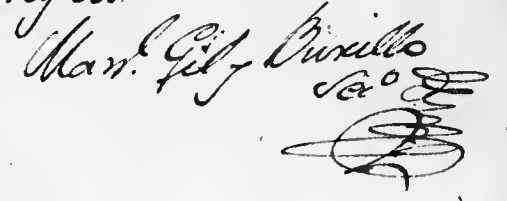 Man.l Gil y Burillo
Sec.o